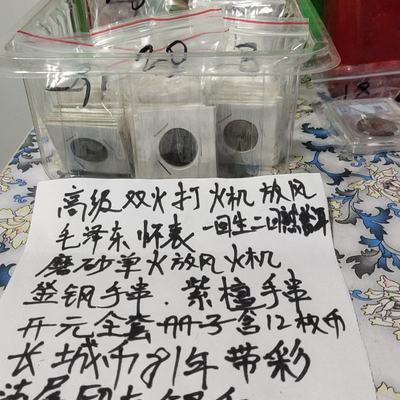 20
3
18
高级双火打火机放风
毛泽东怀表 一回生二回熟
磨砂单火放风火机
金钢手串.紫檀手串
开元全套册子含12枚币
长城币81年带彩